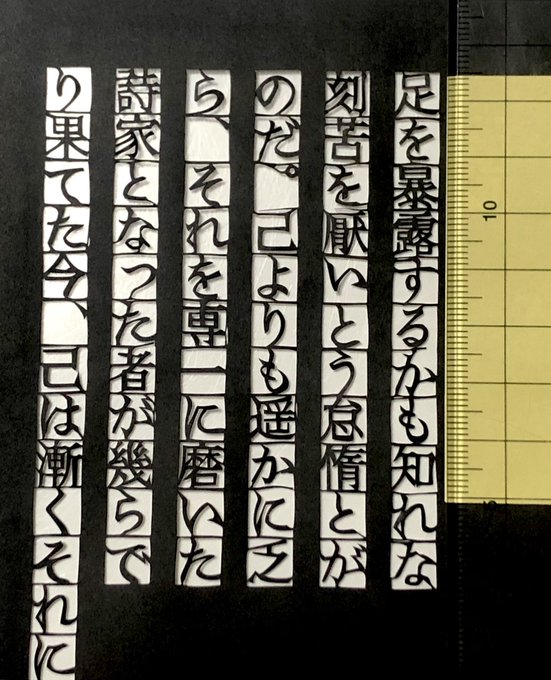 足を暴露するかも知れな
刻苦を厭いとう怠惰とが
のだ。己よりも遥かに乏
ら、それを専一に磨いた
詩家となった者が幾らで
り果てた今、己は漸くそれに
10
5